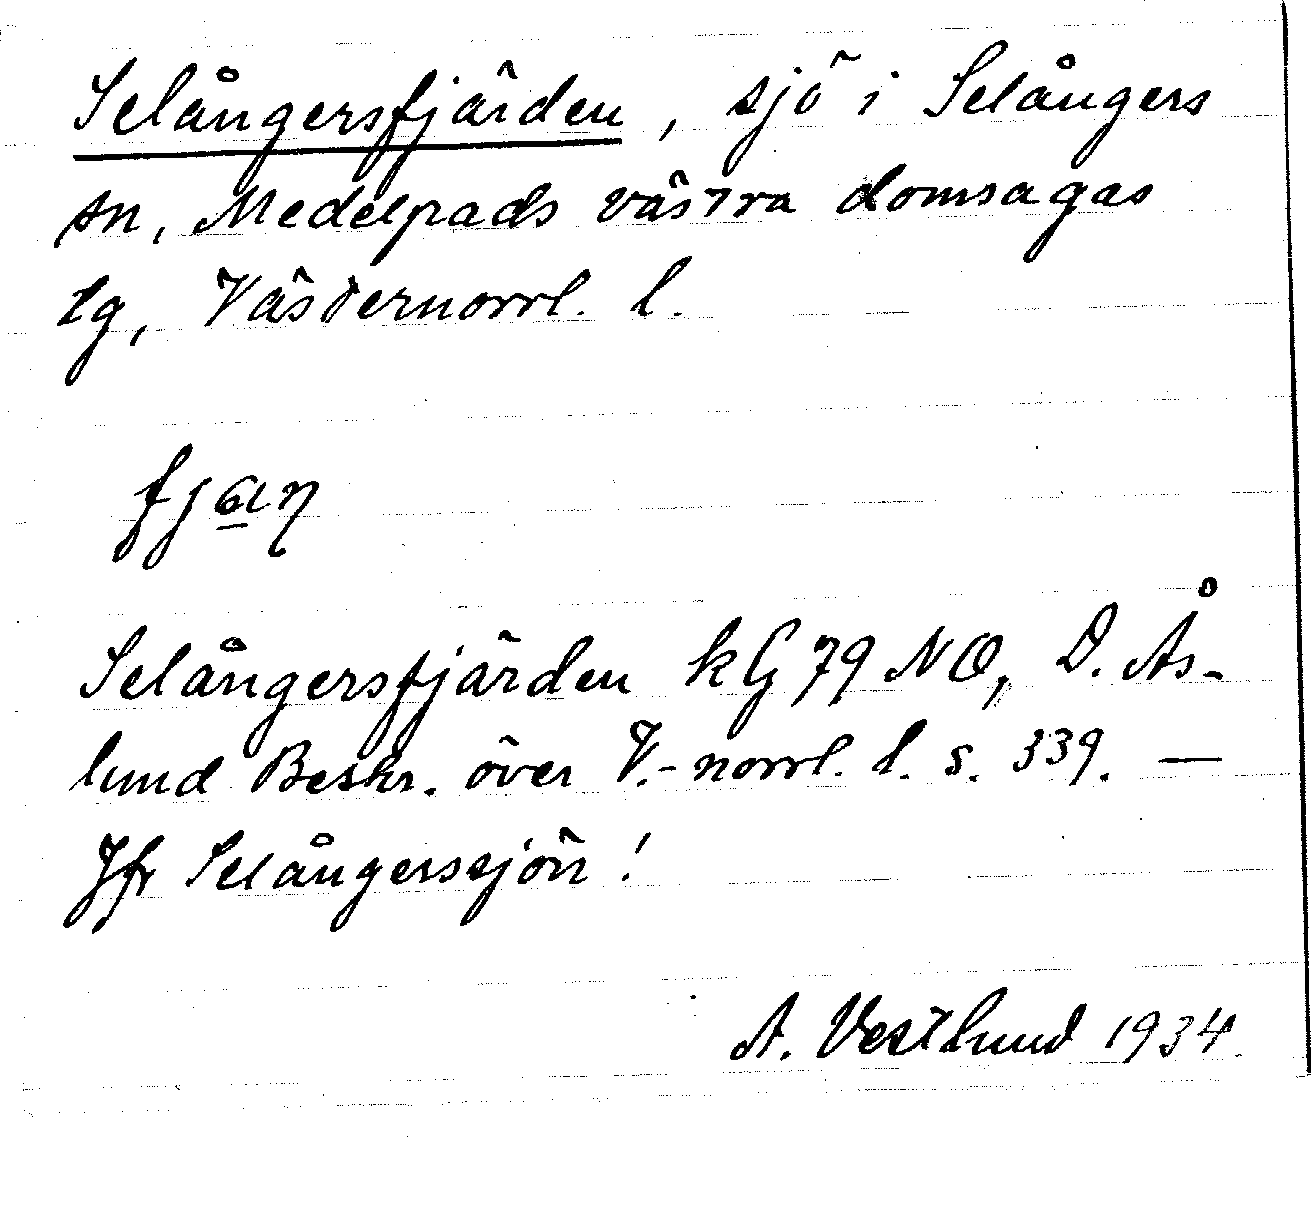 Selångersfjärden, sjö i Selångers
sn, Medelpads västra domsagas
tg, Västernorrl. l.
Selångersfjärden kG 79 NO, D. Ås-
lund Beskr. över V.-norrl. l. s. 339. —
Jfr Selångerssjön!
A. Vestlund 1934